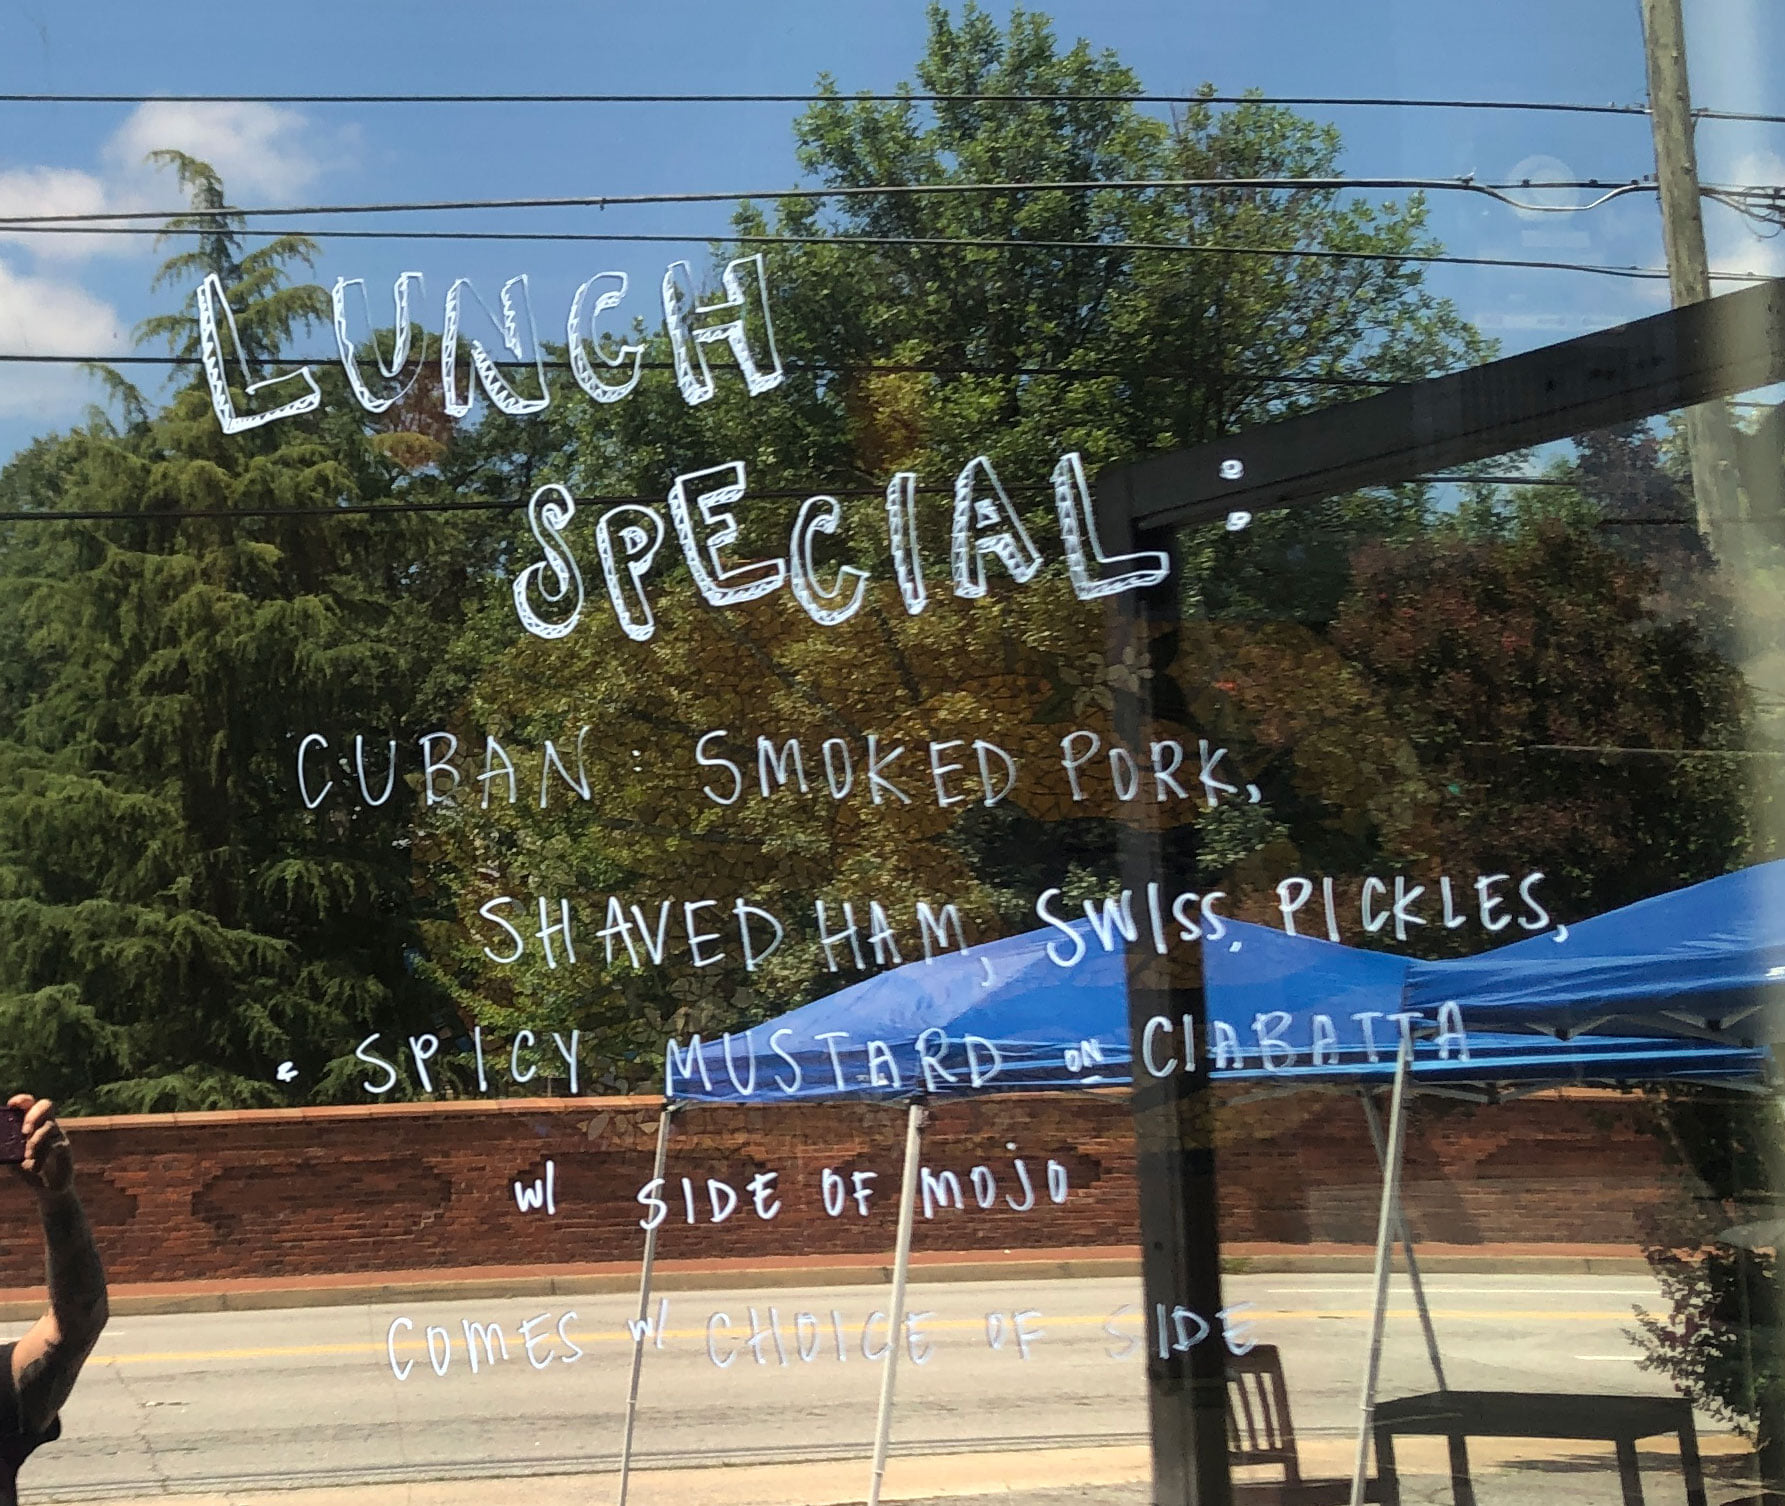 LUNCH
SPECIAL:
CUBAN: SMOKED PORK,
SHAVED HAM, SWISS, PICKLES,
& SPICY MUSTARD ON CIABATTA
W/ SIDE OF MOJO
COMES W/ CHOICE OF SIDE